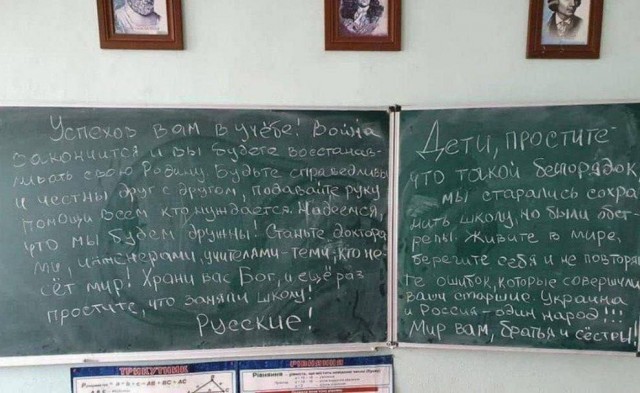 Успехов вам в учёбе! Война
закончится и вы будете восстанав-
ливать свою Родину. Будьте справедливы
и честны друг с другом, подавайте руку
помощи всем кто нуждается. Надеемся,
что мы будем дружны! Станьте доктора-
ми, инженерами, учителями - теми, кто не-
сёт мир! Храни вас Бог, и ещё раз
простите, что заняли школу!
Русские!
Дети, простите
что такой беспорядок,
мы старались сохра
нить школу, но были обст-
релы. Живите в мире,
берегите себя и не повторяй
те ошибок, которые совершили
ваши старшие. Украина
и Россия - один народ!!!
Мир вам, братья и сёстры!
ТРИКУТНИК
РІВНЯННЯ